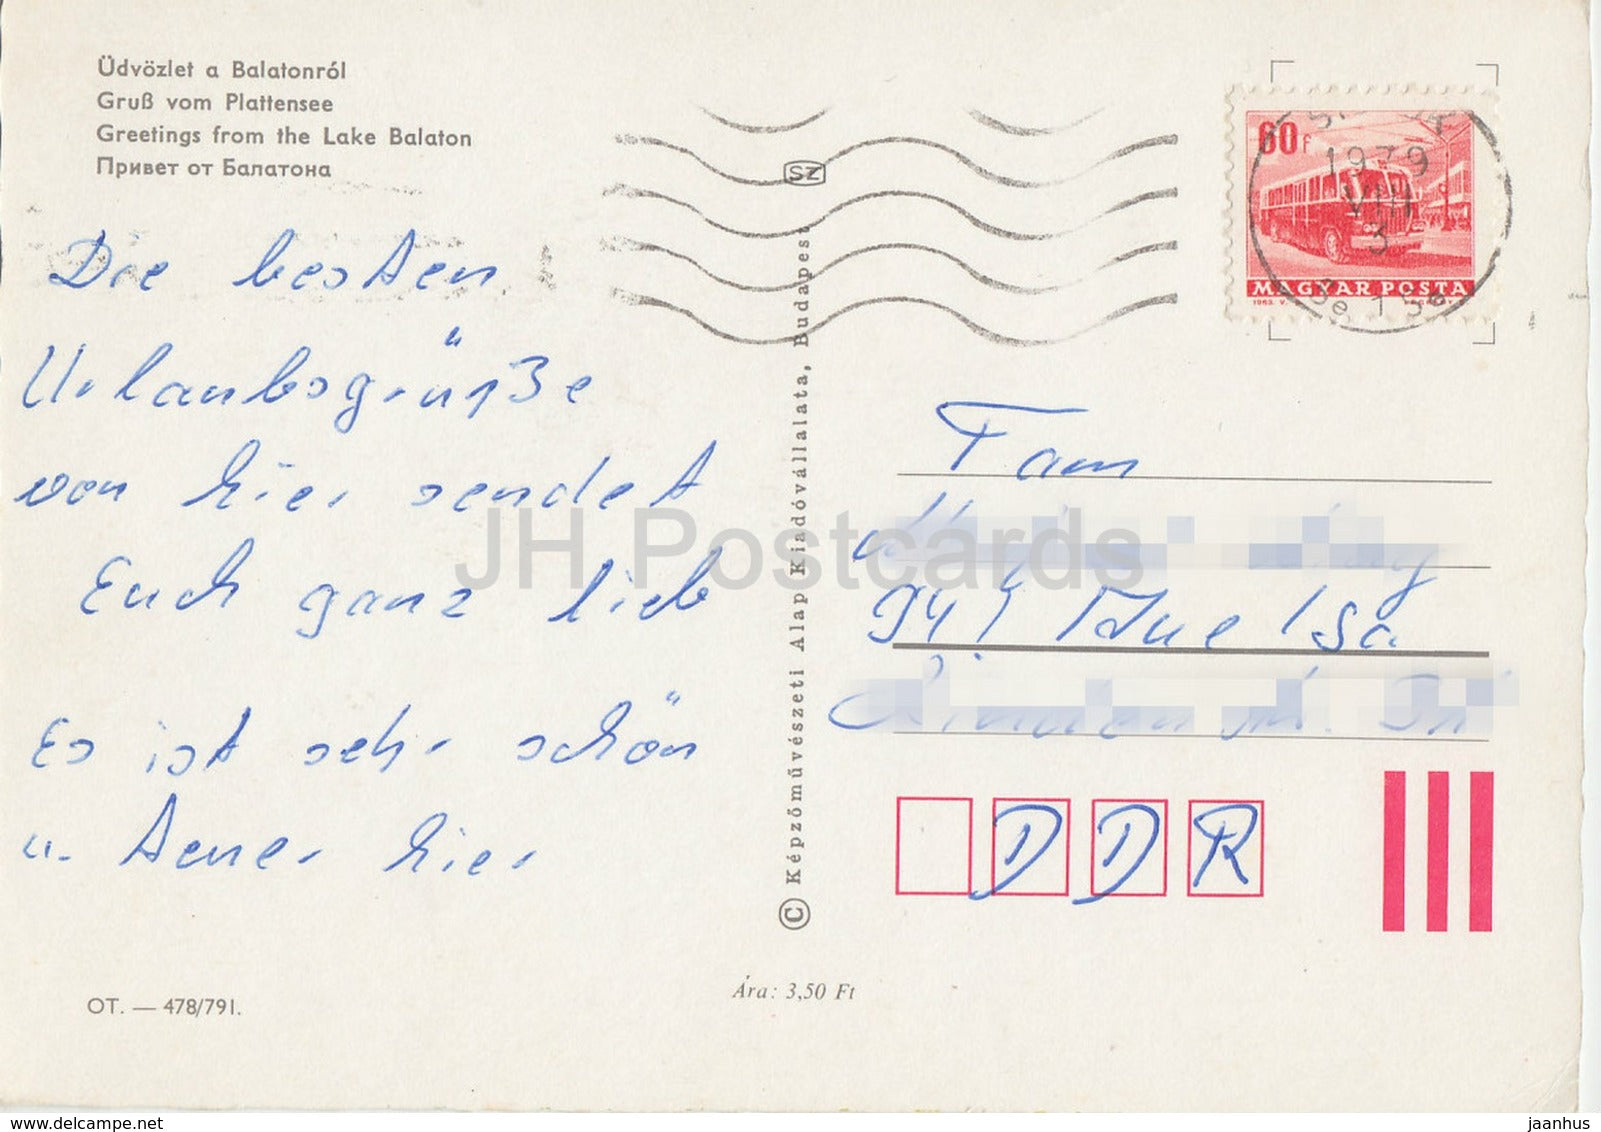 Üdvözlet a Balatonról
Gruß vom Plattensee
Greetings from the Lake Balaton
Привет от Балатона
SZ
60 f
1979
VIII
3
MAGYAR POSTA
1963. V.
Die besten
Urlaubsgrüße
von hier sendet
Euch ganz lieb
Es ist sehr schön
u. teuer hier
© Képzőművészeti Alap Kiadóvállalata, Budapest
Fam
DDR
Ára: 3,50 Ft
OT. — 478/791.
JH Postcards
www.delcampe.net
jaanhus